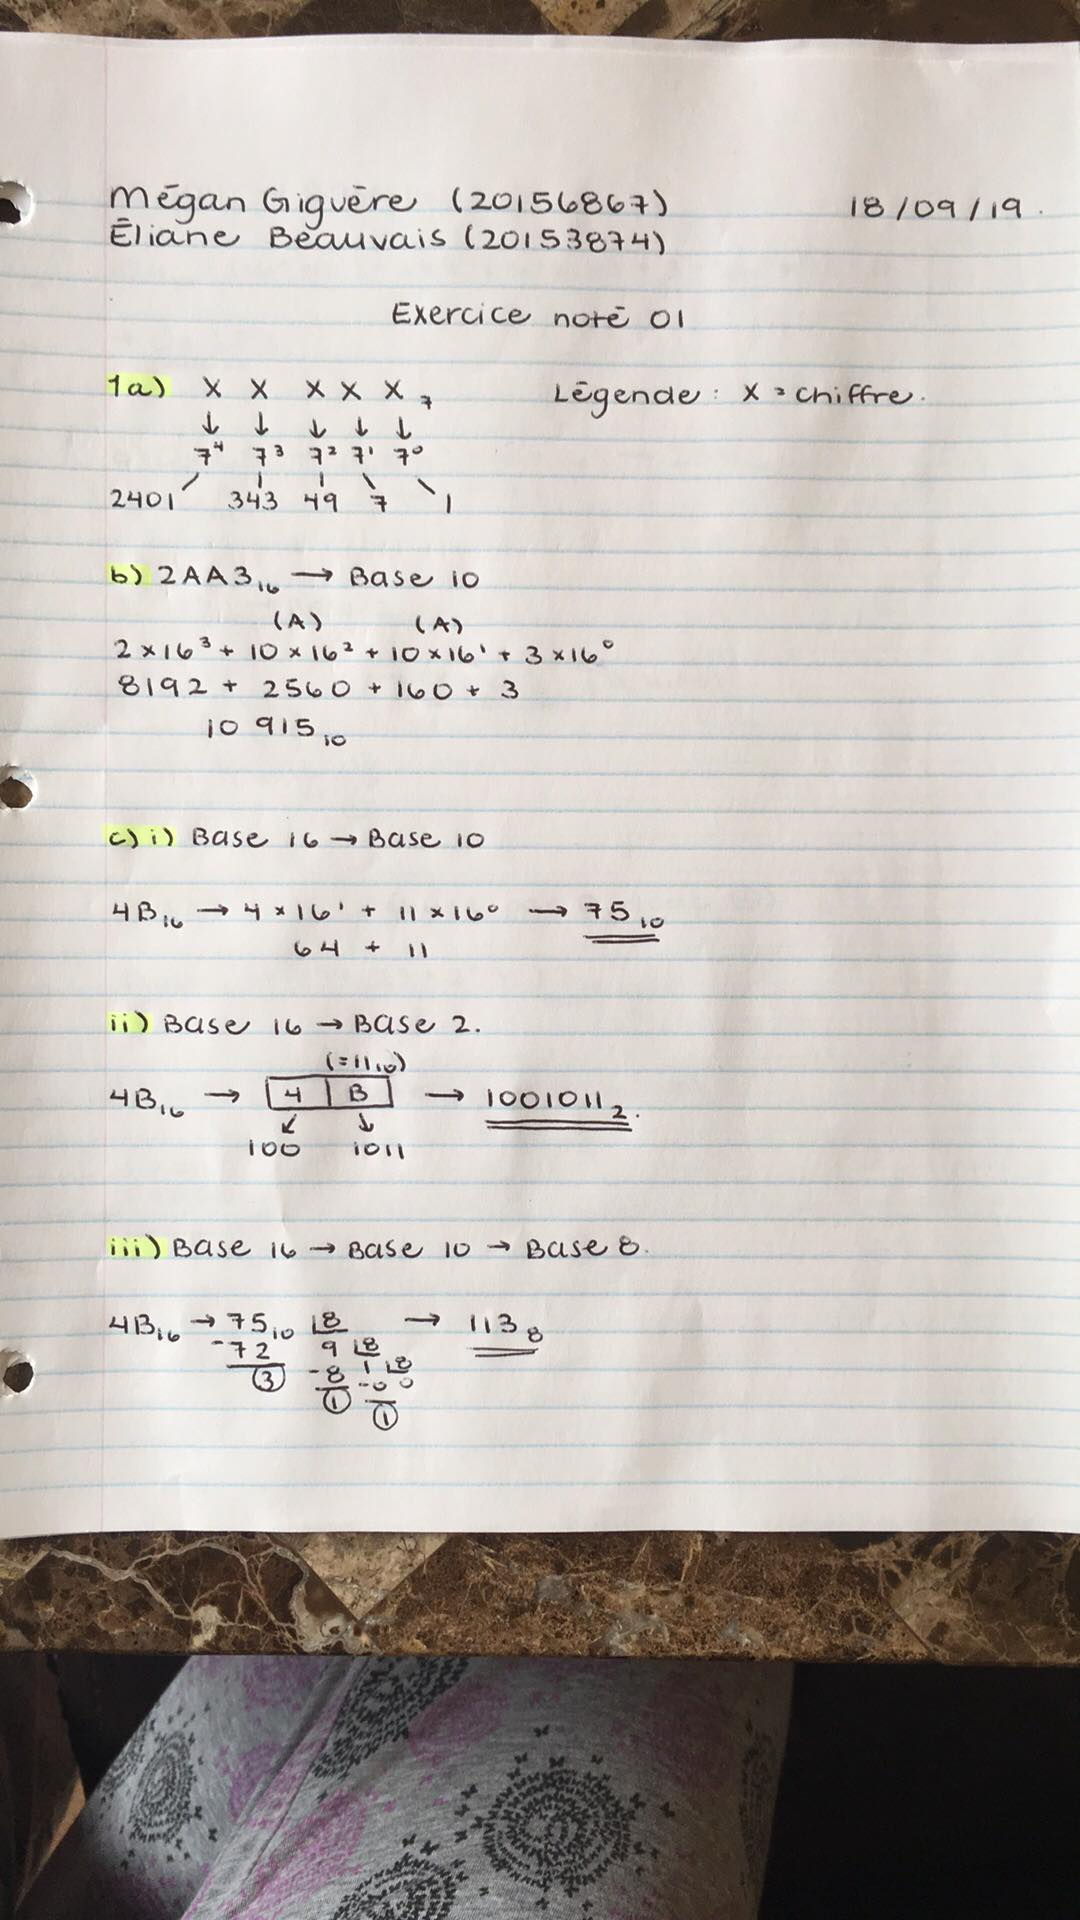 Mégan Giguère (20156867) 18/09/19.
Éliane Beauvais (20153874)
Exercice noté 01
1a) X X X X X ₇ Légende : X = chiffre.
↓ ↓ ↓ ↓ ↓
7⁴ 7³ 7² 7¹ 7⁰
2401 343 49 7 1
b) 2AA3₁₆ → Base 10
(A) (A)
2×16³ + 10×16² + 10×16¹ + 3×16⁰
8192 + 2560 + 160 + 3
10 915₁₀
c) i) Base 16 → Base 10
4B₁₆ → 4×16¹ + 11×16⁰ → 75₁₀
64 + 11
ii) Base 16 → Base 2.
(=11₁₀)
4B₁₆ → 4 | B → 1001011₂.
↙ ↓
100 1011
iii) Base 16 → Base 10 → Base 8.
4B₁₆ → 75₁₀ 8 → 113₈
-72 9 8
3 -8 1 8
1 -0 0
1